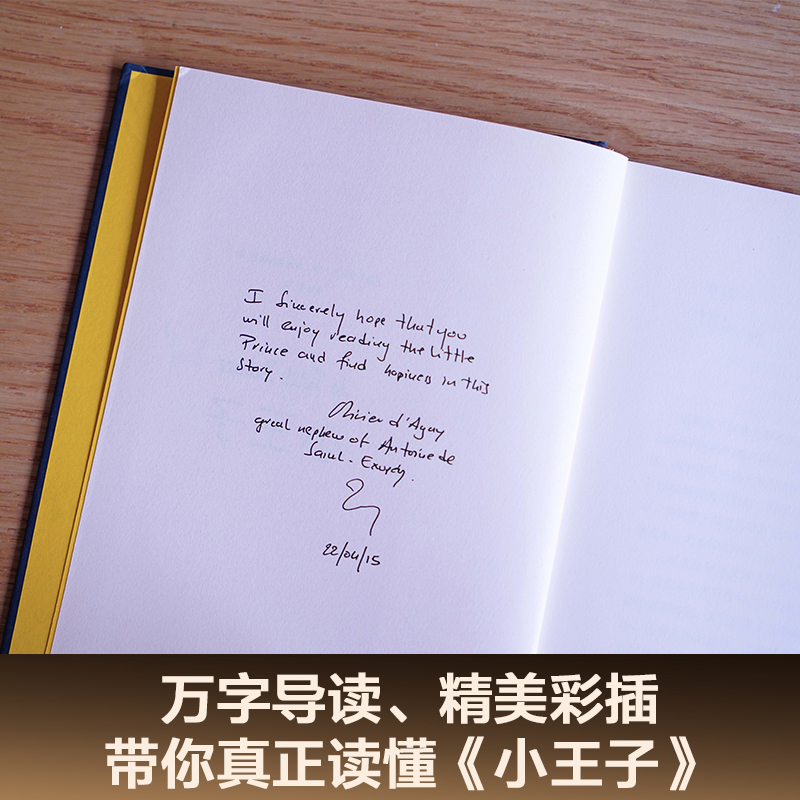 I sincerely hope that you
will enjoy reading the little
Prince and find hapiness in this
story.
Olivier d'Agay
great nephew of Antoine de
Saint-Exupéry.
22/04/15
万字导读、精美彩插
带你真正读懂《小王子》